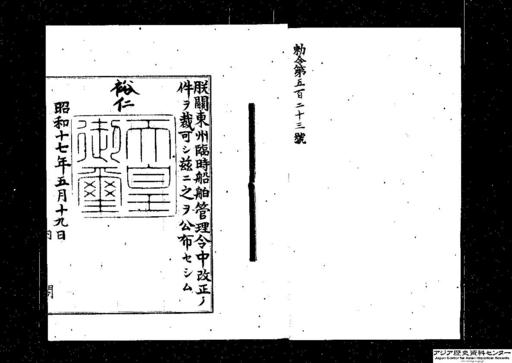 勅令第五百二十三號
朕關東州臨時船舶管理令中改正ノ
件ヲ裁可シ茲ニ之ヲ公布セシム
裕仁
天皇御璽
昭和十七年五月十九日
内閣
アジア歴史資料センター
Japan Center for Asian Historical Records